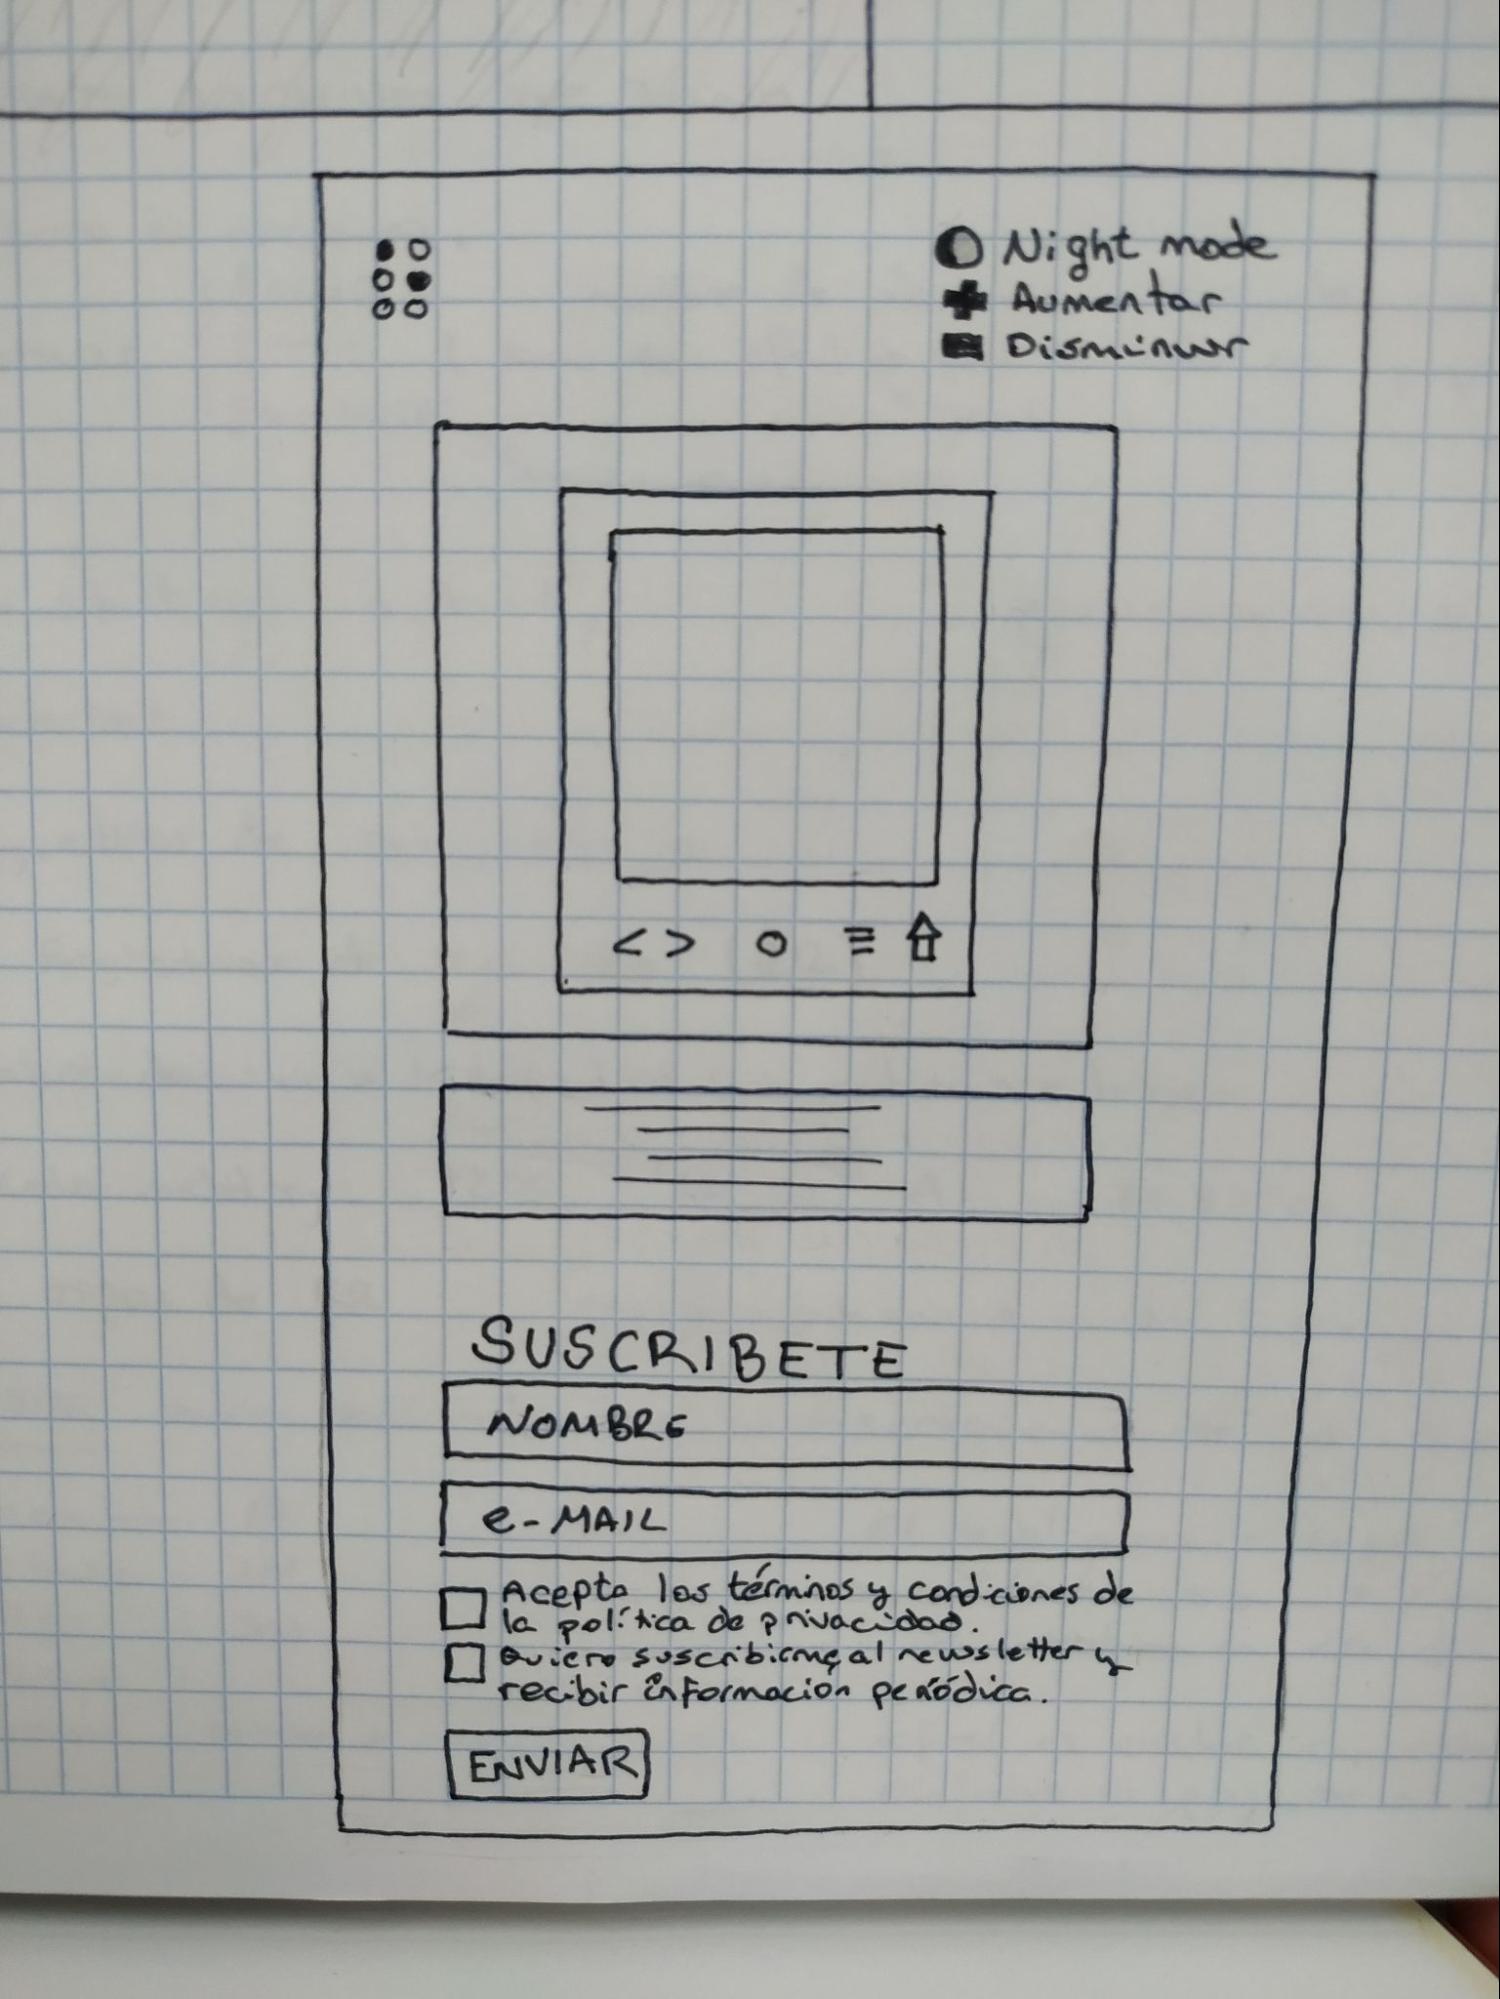 Night mode
Aumentar
Disminuir
< >
SUSCRIBETE
NOMBRE
e-MAIL
Acepto los términos y condiciones de
la política de privacidad.
Quiero suscribirme al newsletter y
recibir información periódica.
ENVIAR